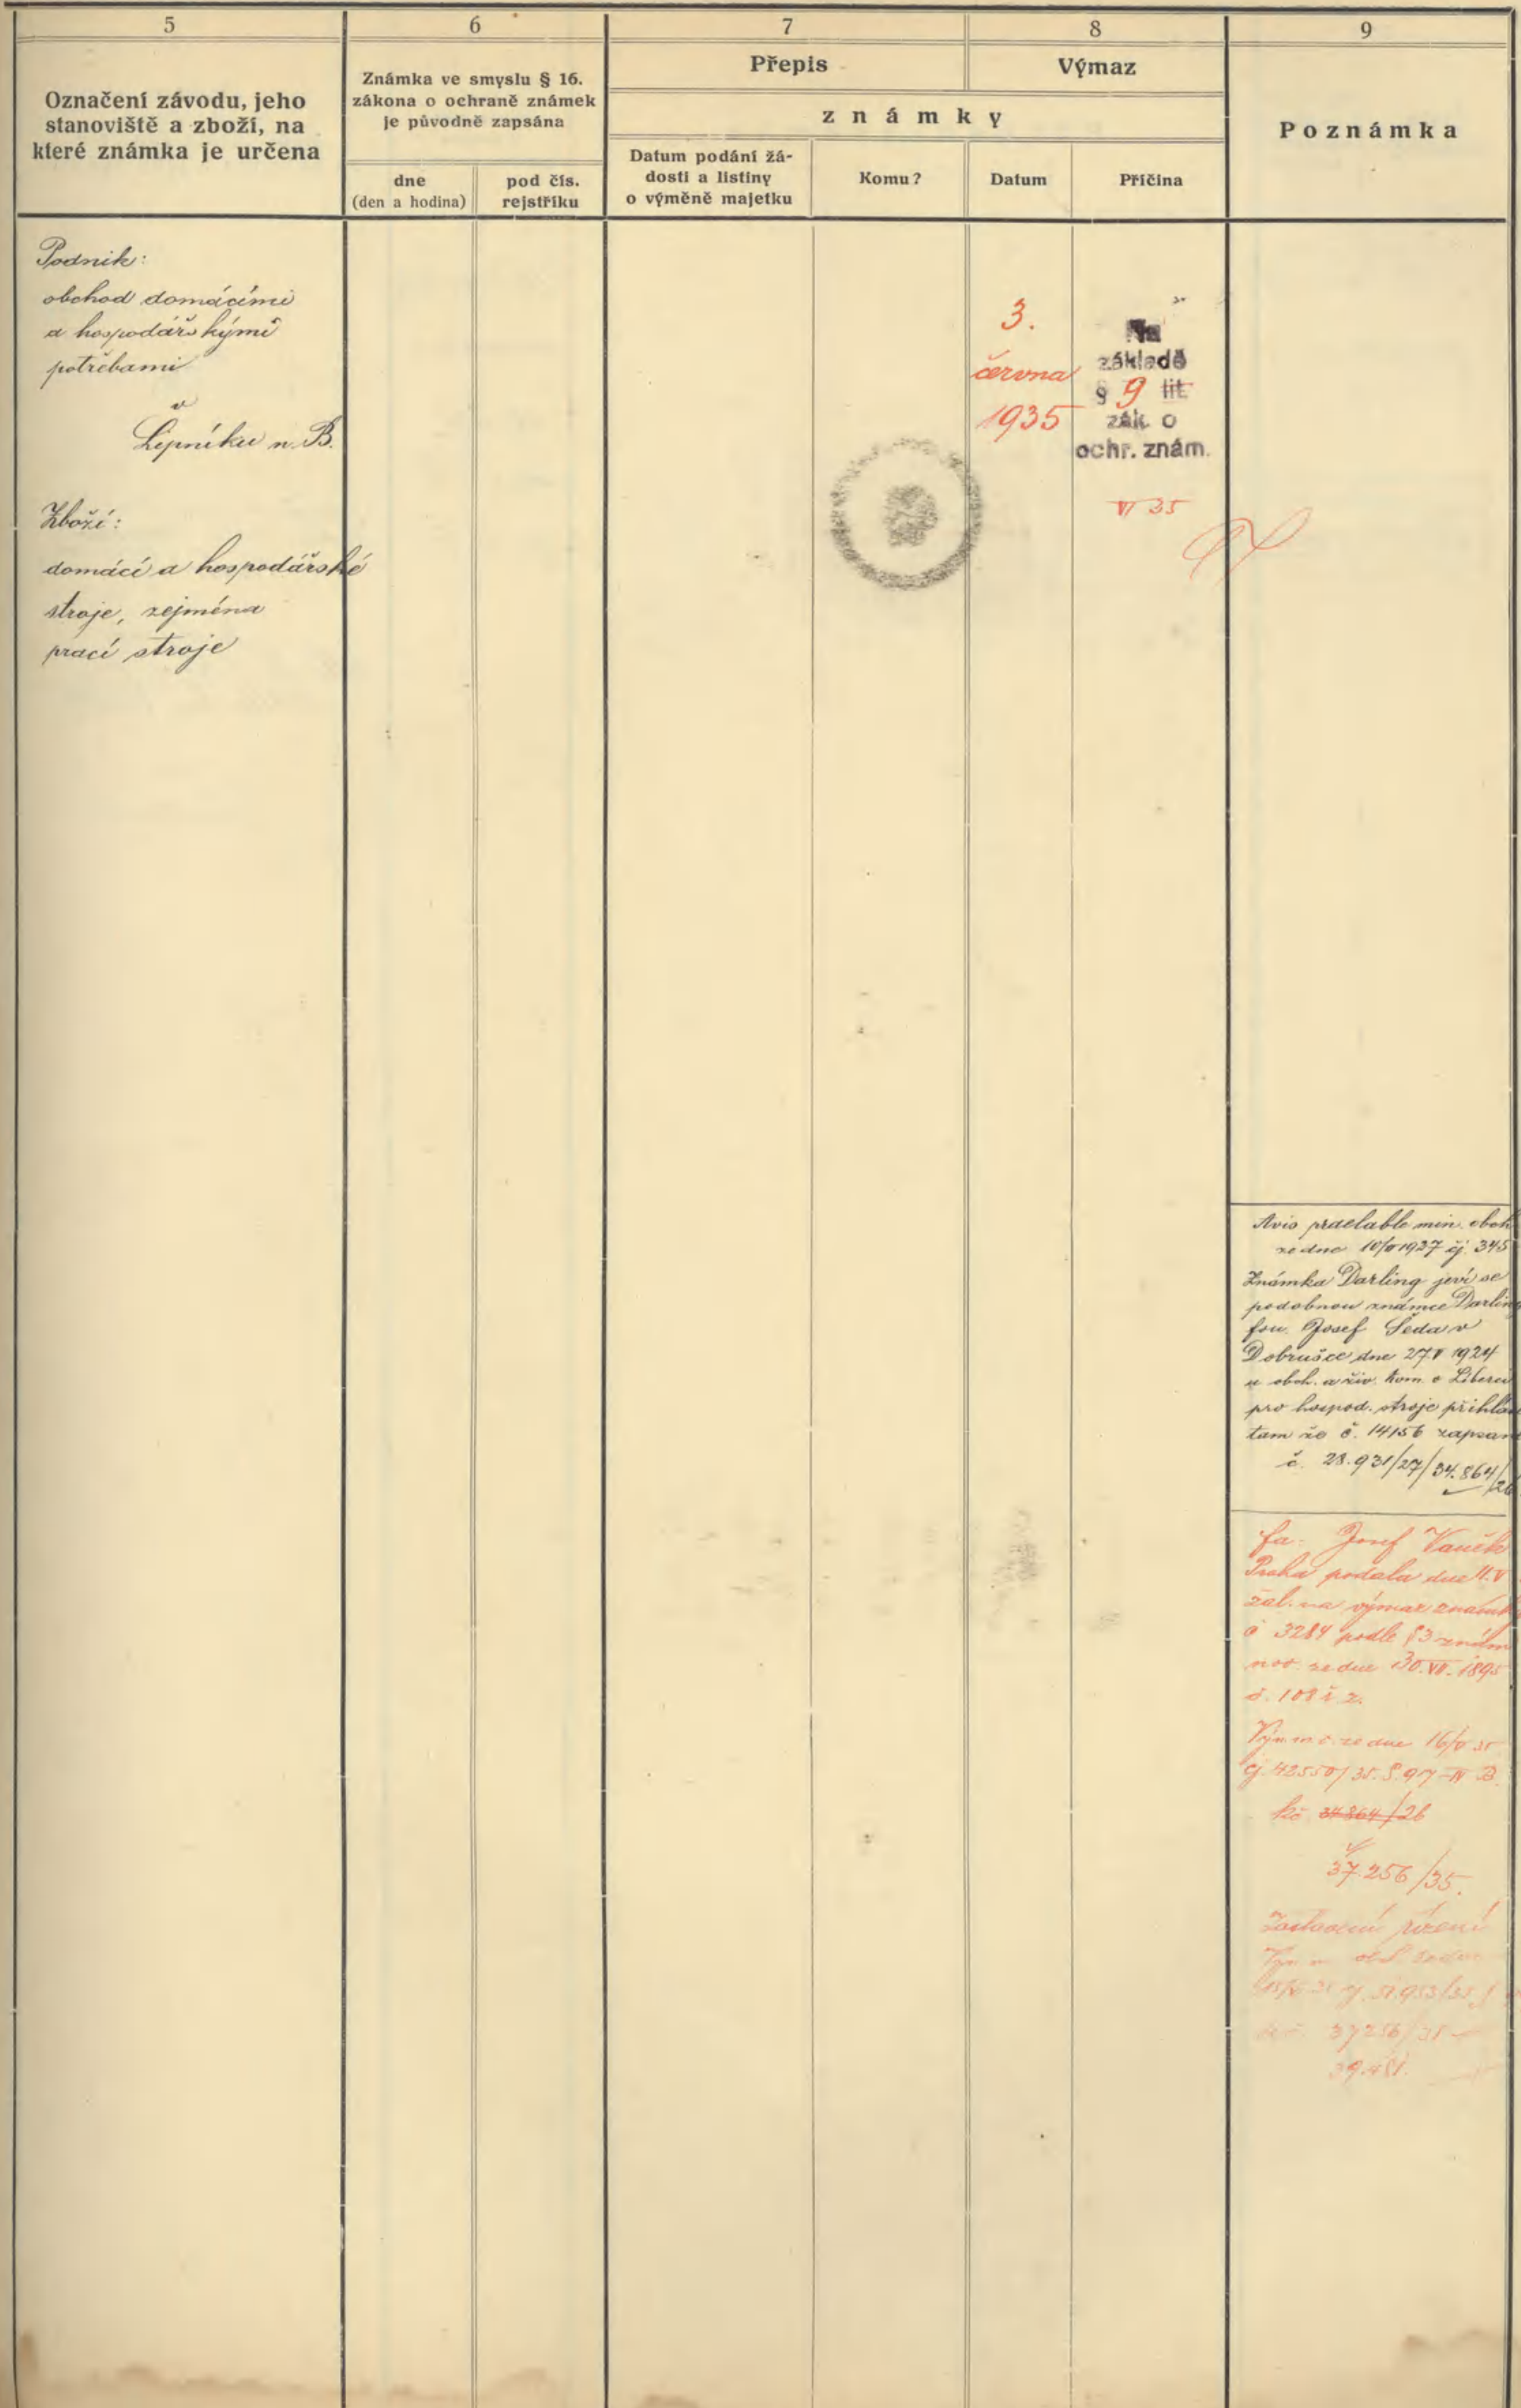 5
6
7
8
9
Označení závodu, jeho
stanoviště a zboží, na
které známka je určena
Známka ve smyslu § 16.
zákona o ochraně známek
je původně zapsána
dne
(den a hodina)
pod čís.
rejstříku
Přepis
Výmaz
známky
Datum podání žá-
dosti a listiny
o výměně majetku
Komu?
Datum
Příčina
Poznámka
Podnik:
obchod domácími
a hospodářskými
potřebami
v
Lipníku n. B.
Zboží:
domácí a hospodářské
stroje, zejména
prací stroje
3.
června
1935
Na
základě
§ 9 lit
zák. o
ochr. znám.
VI 35
Avis préalable min. obch
ze dne 1927 čj. 345
Známka Darling jeví se
podobnou známce Darlin
fou Josef Šeda v
Dobrušce dne 27.V 1924
u obch. a živ. kom. v Liberci
pro hospod. stroje přihlá
tam že č. 14156 zapsan
č. 28.931/27/34.864/26
fa: Josef Vaněk
Praha podala dne 11.V
žal. na výmaz známk
č 3284 podle §3 znám
nov. ze dne 30.VII.1895
č. 108 ř z.
ze dne 35
čj. 42550/35.
34864/26
37.256/35.
Zastavení řízení
37256/35
39.481.